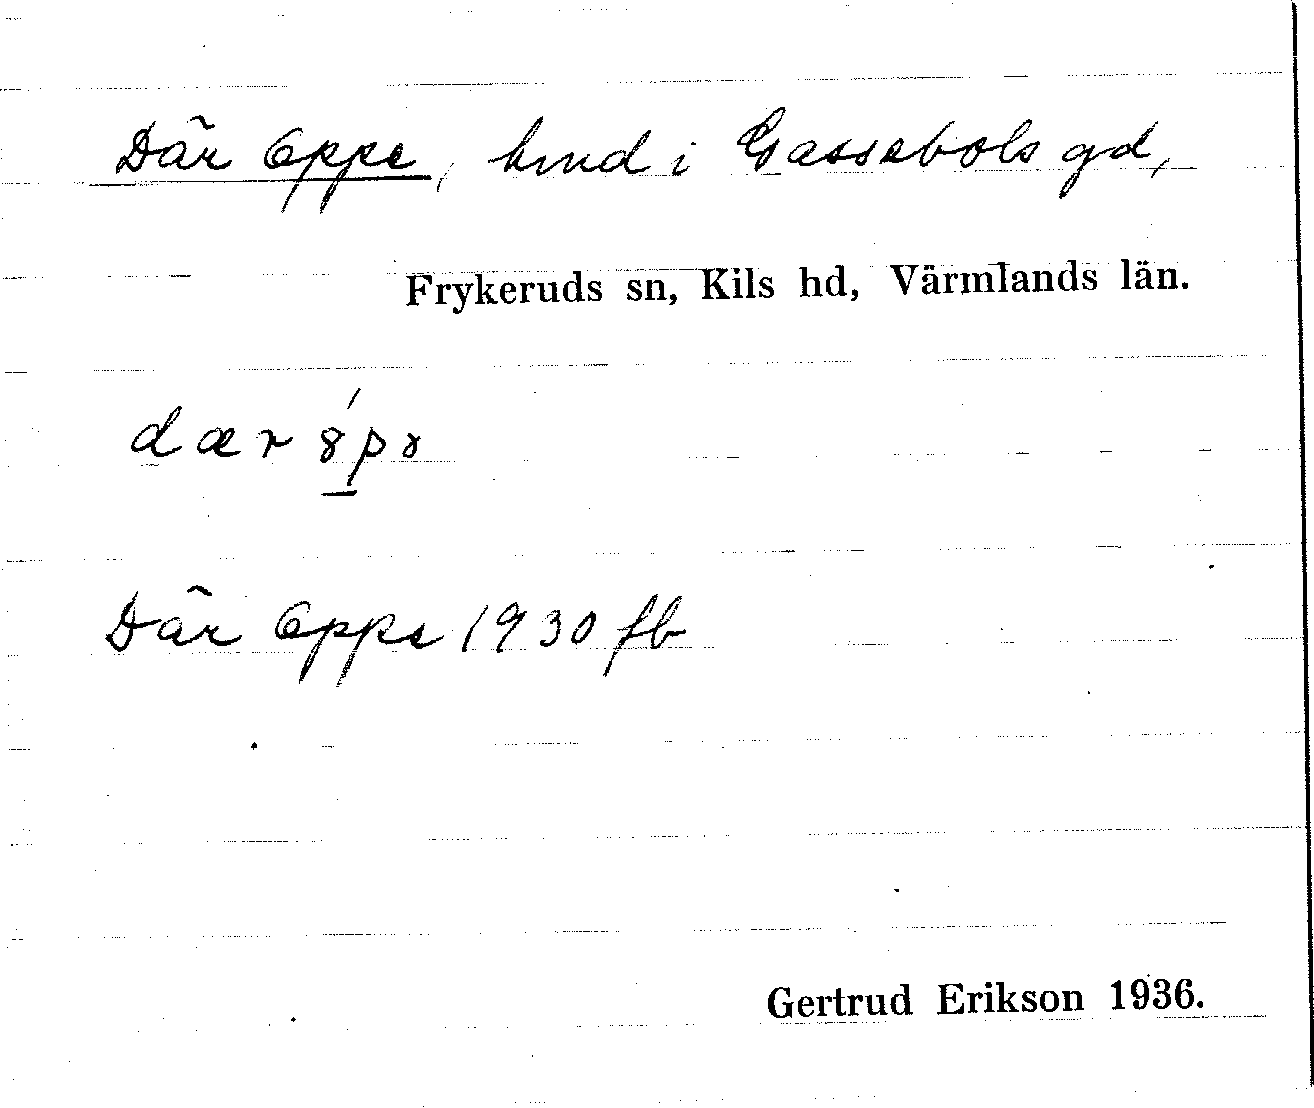 Där Oppe, hmd i Gassebols gd,
Frykeruds sn, Kils hd, Värmlands län.
dær
Där Oppe 1930 fb
Gertrud Erikson 1936.